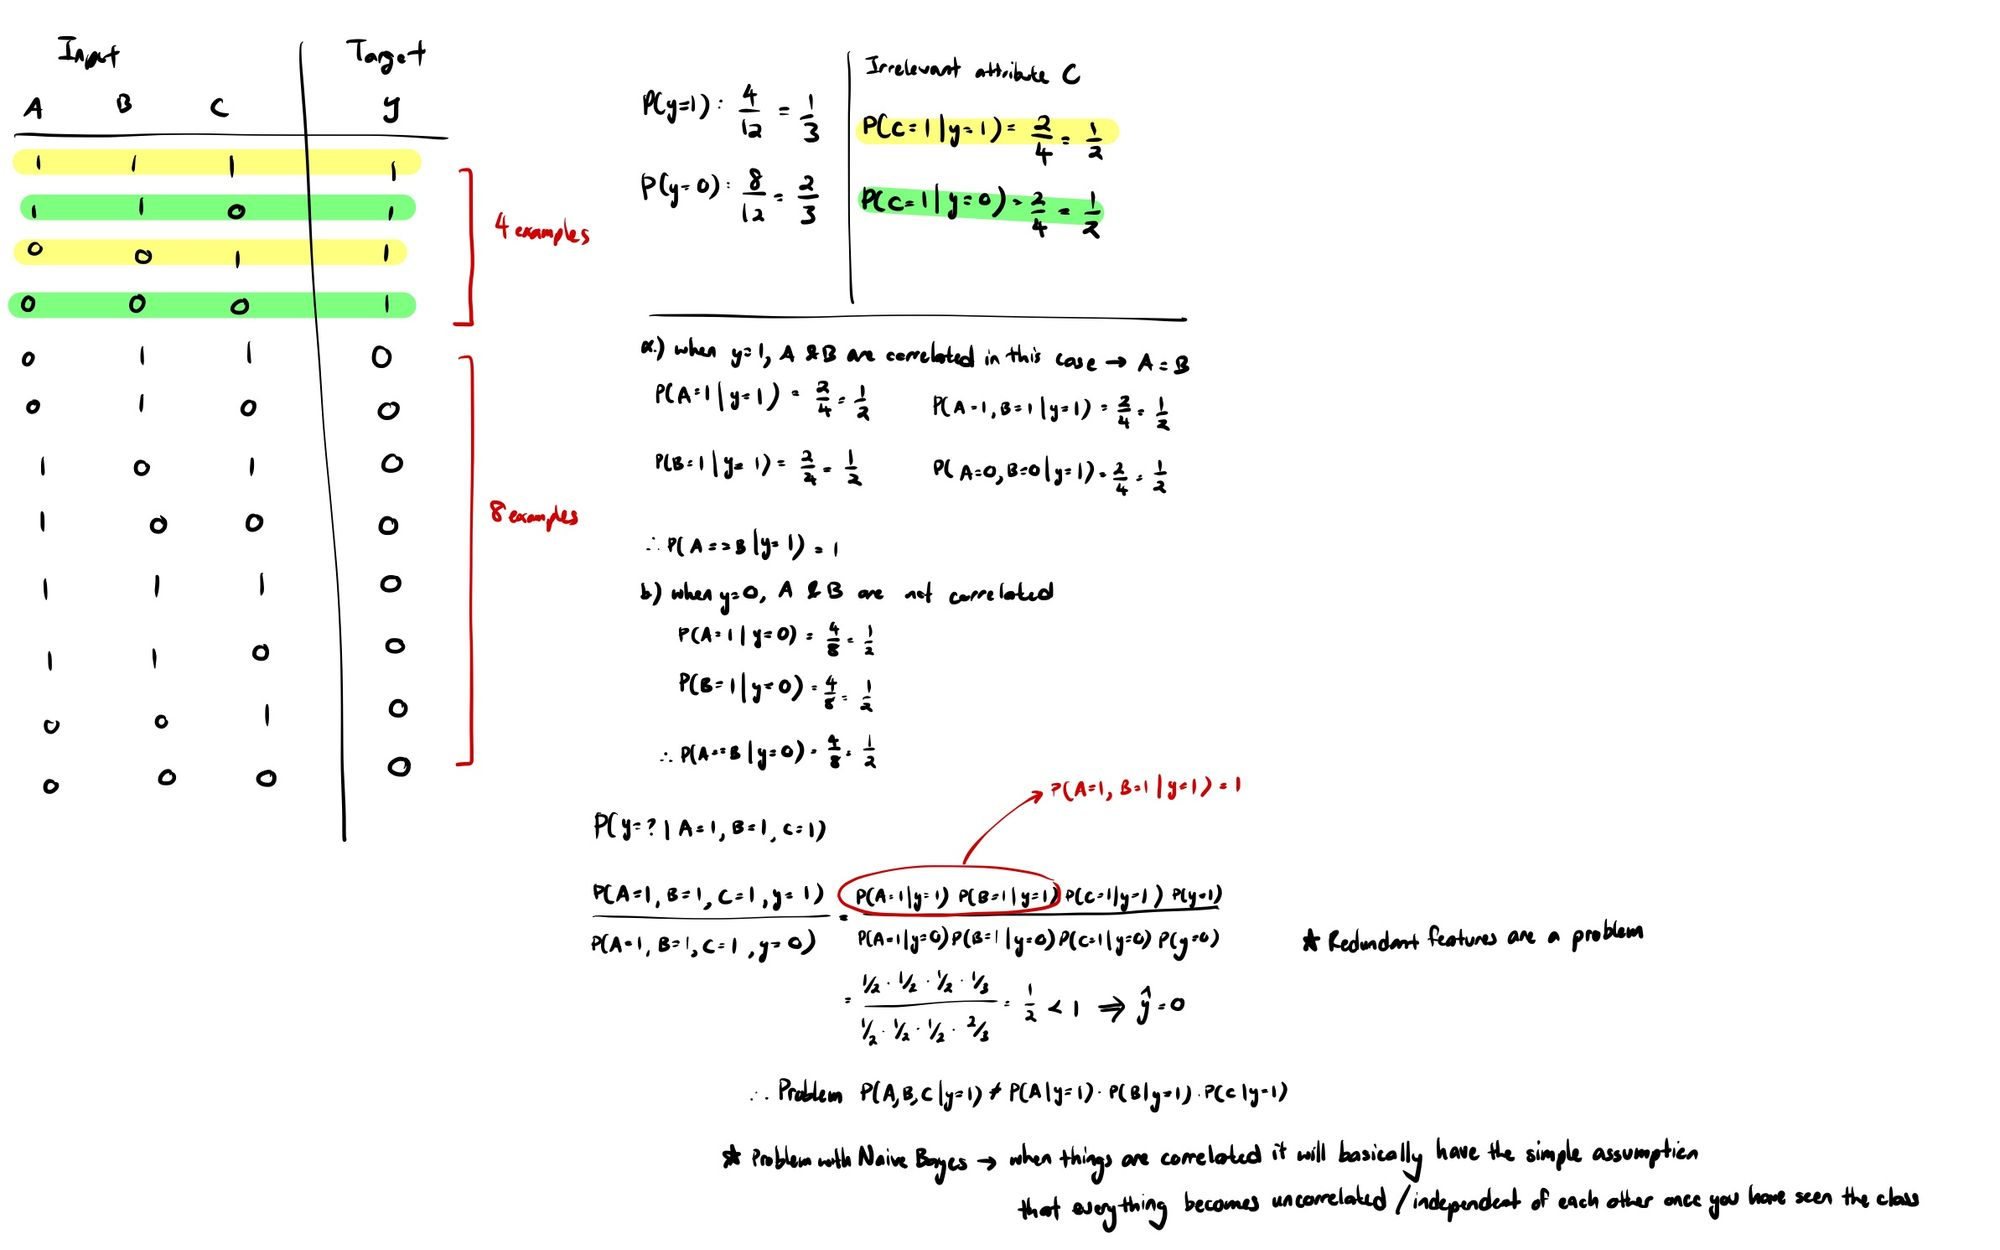 Input Target
A B C y
1 1 1 1
1 1 0 1
0 0 1 1
0 0 0 1
4 examples
0 1 1 0
0 1 0 0
1 0 1 0
1 0 0 0
1 1 1 0
1 1 0 0
0 0 1 0
0 0 0 0
8 examples
P(y=1): 4/12 = 1/3
P(y=0): 8/12 = 2/3
Irrelevant attribute C
P(C=1|y=1) = 2/4 = 1/2
P(C=1|y=0) = 2/4 = 1/2
a.) when y=1, A & B are correlated in this case → A = B
P(A=1|y=1) = 2/4 = 1/2 P(A=1, B=1|y=1) = 2/4 = 1/2
P(B=1|y=1) = 2/4 = 1/2 P(A=0, B=0|y=1) = 2/4 = 1/2
∴ P(A==B|y=1) = 1
b) when y=0, A & B are not correlated
P(A=1|y=0) = 4/8 = 1/2
P(B=1|y=0) = 4/8 = 1/2
∴ P(A==B|y=0) = 4/8 = 1/2
P(A=1, B=1|y=1) = 1
P(y=?|A=1, B=1, C=1)
P(A=1, B=1, C=1, y=1) / P(A=1, B=1, C=1, y=0) = P(A=1|y=1) P(B=1|y=1) P(C=1|y=1) P(y=1) / P(A=1|y=0) P(B=1|y=0) P(C=1|y=0) P(y=0)
★ Redundant features are a problem
= 1/2 · 1/2 · 1/2 · 1/3 / 1/2 · 1/2 · 1/2 · 2/3 = 1/2 < 1 ⇒ ŷ=0
∴ Problem P(A,B,C|y=1) ≠ P(A|y=1) · P(B|y=1) · P(C|y=1)
★ Problem with Naive Bayes → when things are correlated it will basically have the simple assumption
that everything becomes uncorrelated / independent of each other once you have seen the class